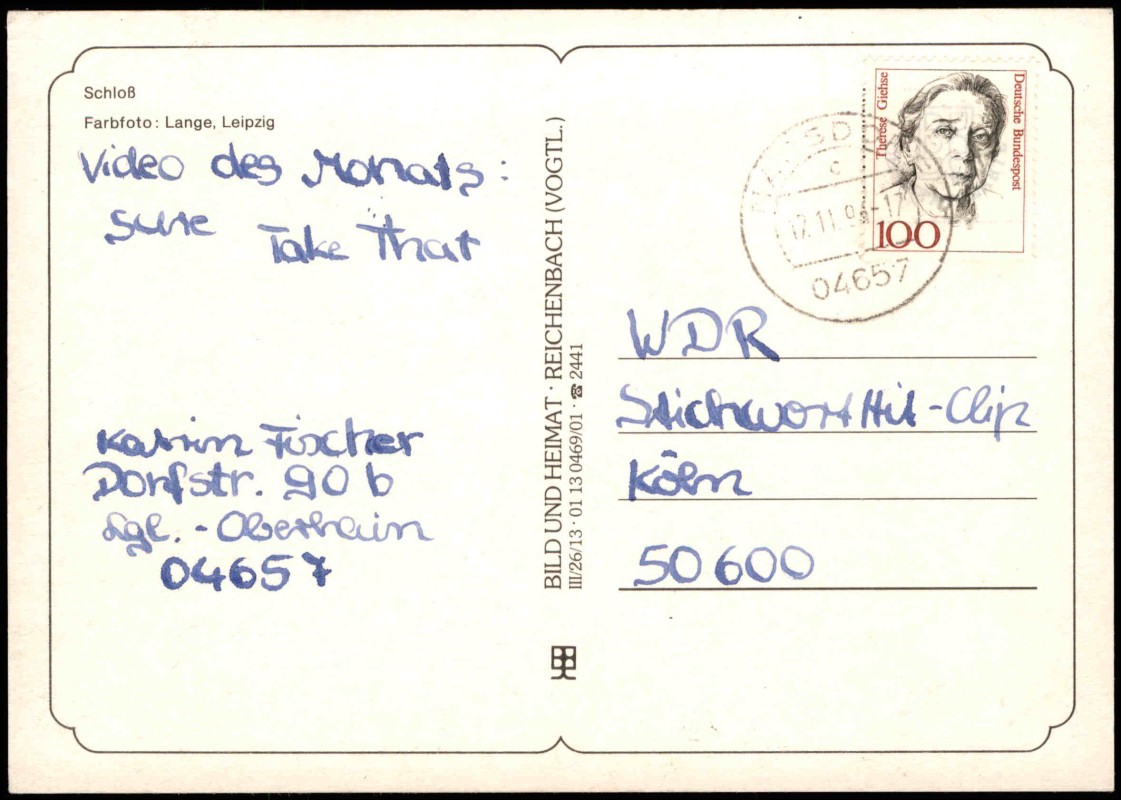 Schloß
Farbfoto: Lange, Leipzig
Video des Monats:
sure Take That
Katrin Fischer
Dorfstr. 90 b
Lgl.-Oberhain
04657
BILD UND HEIMAT · REICHENBACH (VOGTL.)
III/26/13 · 01 13 0469/01 · ☎ 2441
Deutsche Bundespost
Therese Giehse
100
c
04657
WDR
Stichwort Hit-Clip
Köln
50600